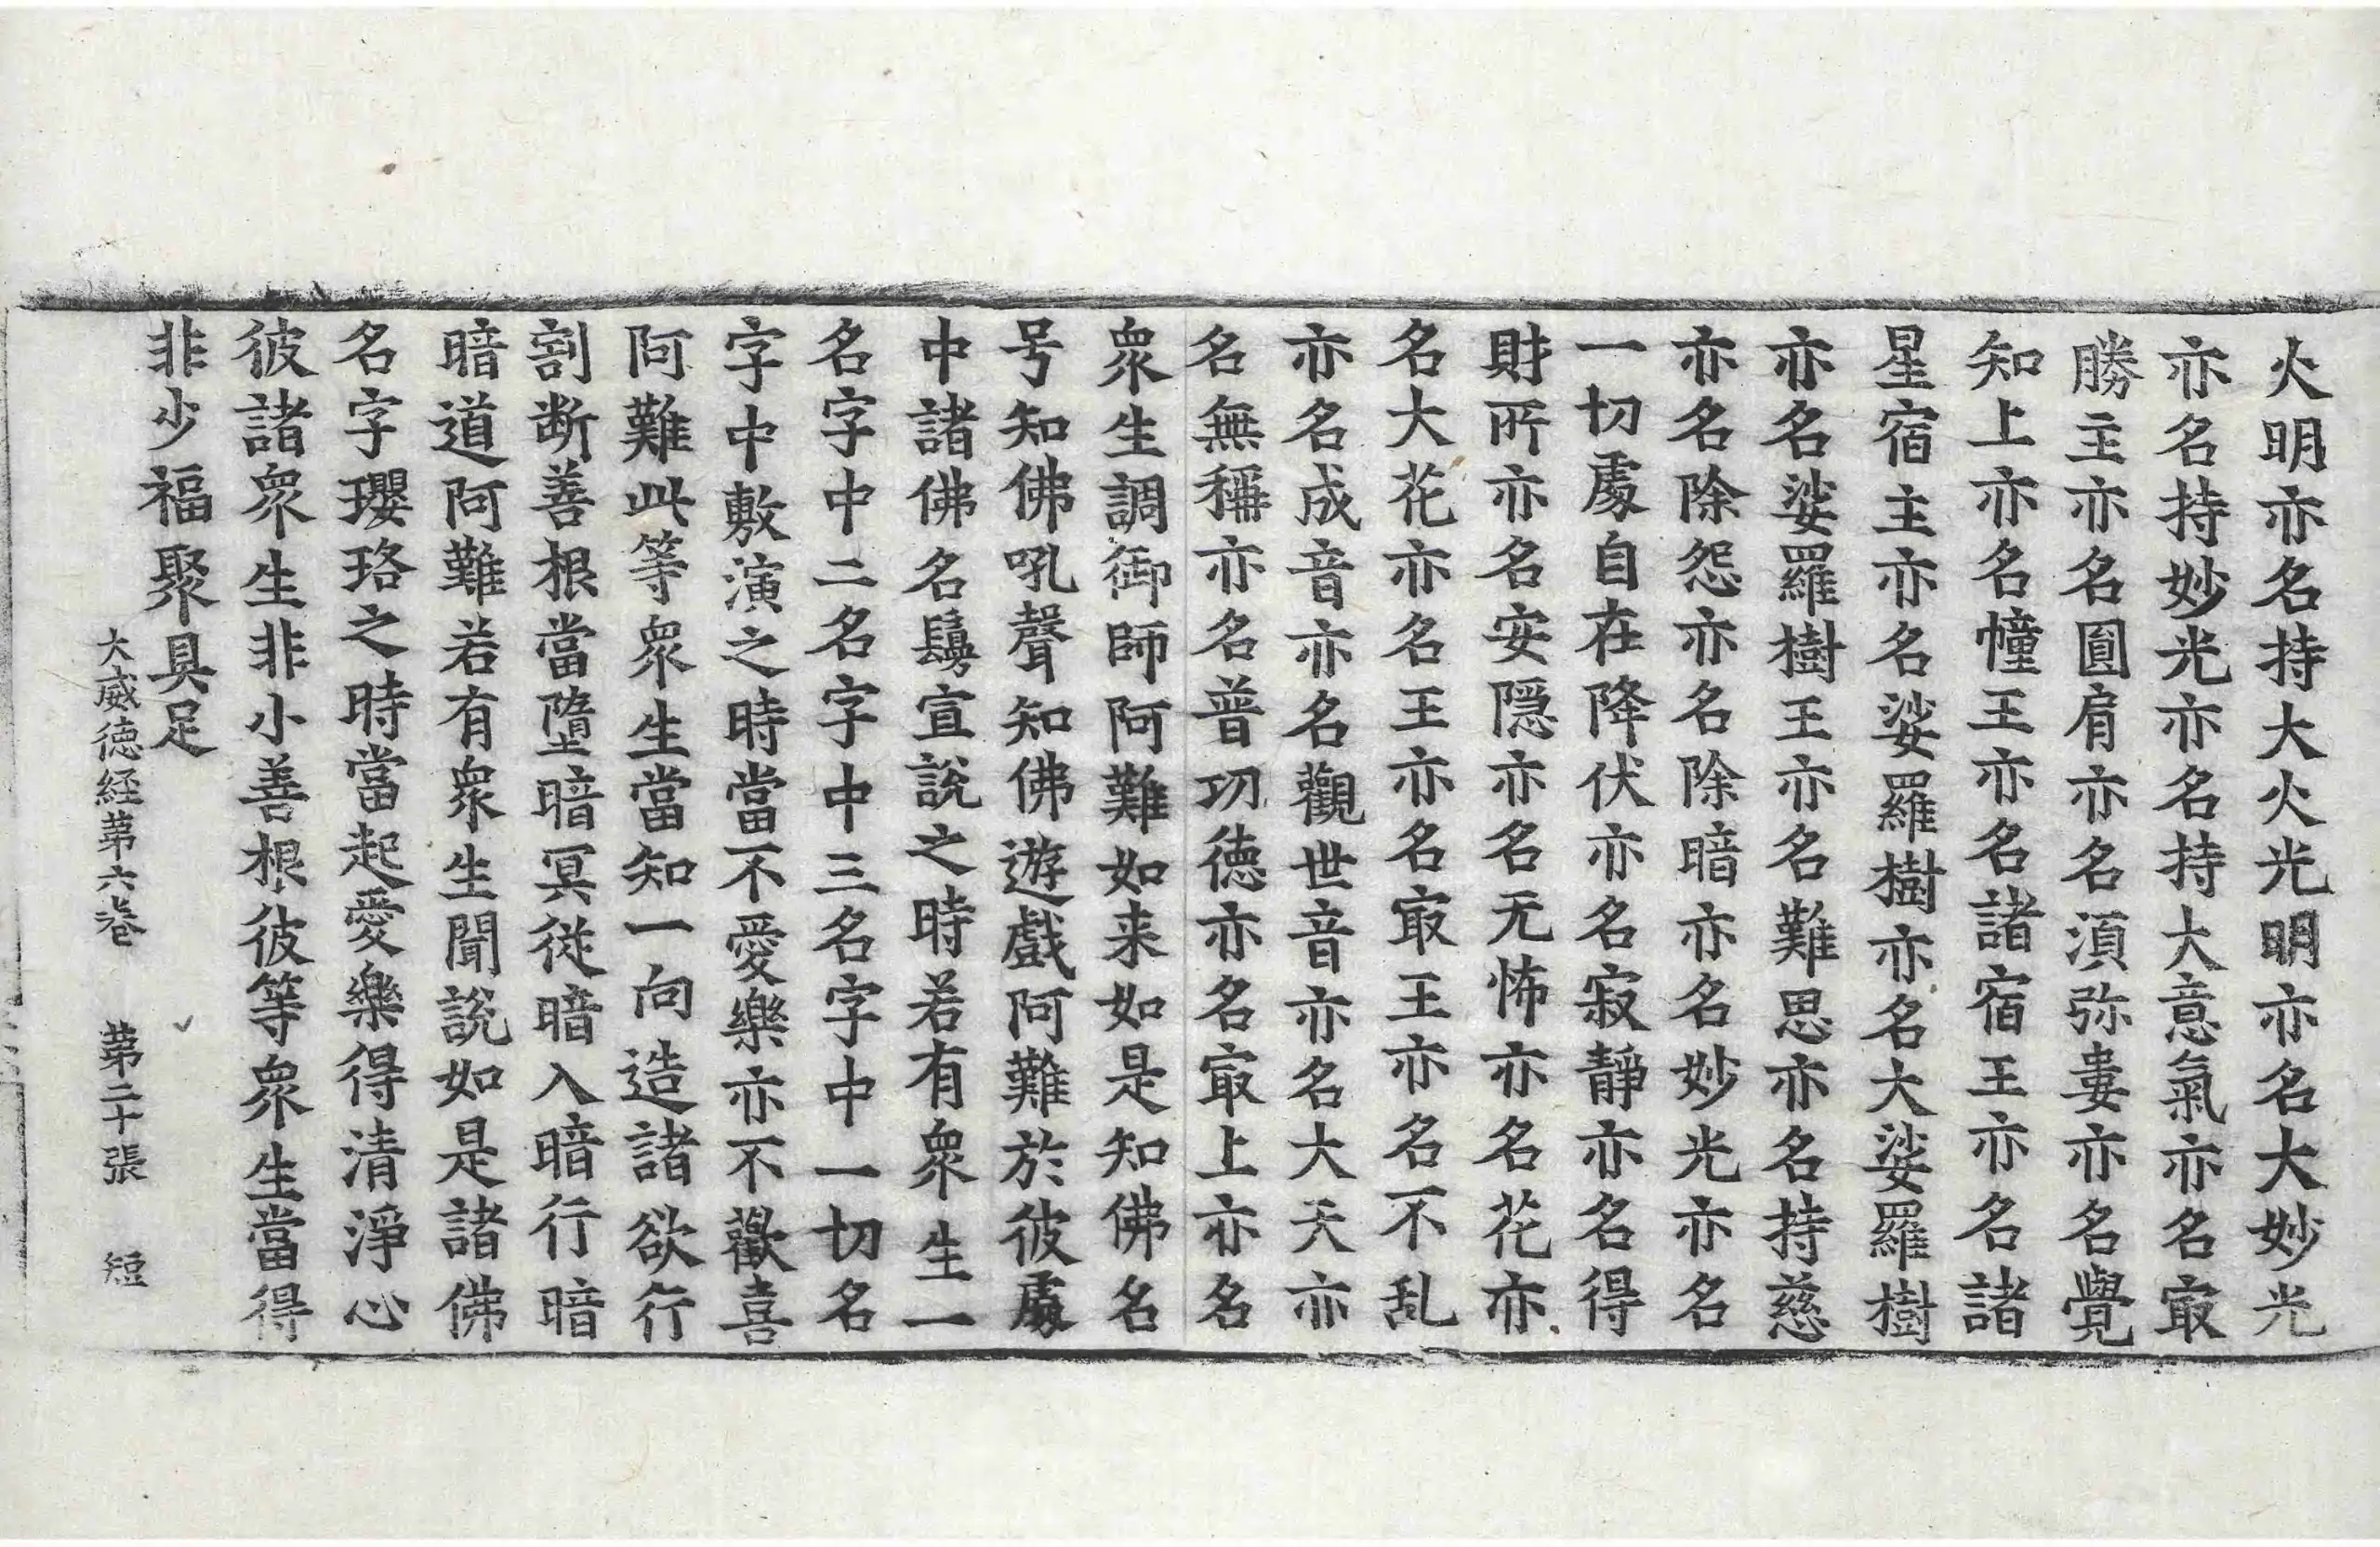 火明亦名持大火光明亦名大妙光
亦名持妙光亦名持大意氣亦名㝡
勝主亦名圓肩亦名湏弥婁亦名覺
知上亦名幢王亦名諸宿王亦名諸
星宿主亦名娑羅樹亦名大娑羅樹
亦名娑羅樹王亦名難思亦名持慈
亦名除怨亦名除暗亦名妙光亦名
一切處自在降伏亦名寂靜亦名得
財所亦名安隱亦名无怖亦名花亦
名大花亦名王亦名㝡王亦名不乱
亦名成音亦名觀世音亦名大天亦
名無稱亦名普功德亦名㝡上亦名
衆生調御師阿難如来如是知佛名
号知佛吼聲知佛遊戲阿難於彼處
中諸佛名鬘宣說之時若有衆生一
名字中二名字中三名字中一切名
字中敷演之時當不愛樂亦不歡喜
阿難此等衆生當知一向造諸欲行
割断善根當墮暗冥從暗入暗行暗
暗道阿難若有衆生聞說如是諸佛
名字瓔珞之時當起愛樂得清淨心
彼諸衆生非小善根彼等衆生當得
非少福聚具足
大威德経第六卷 第二十張 短